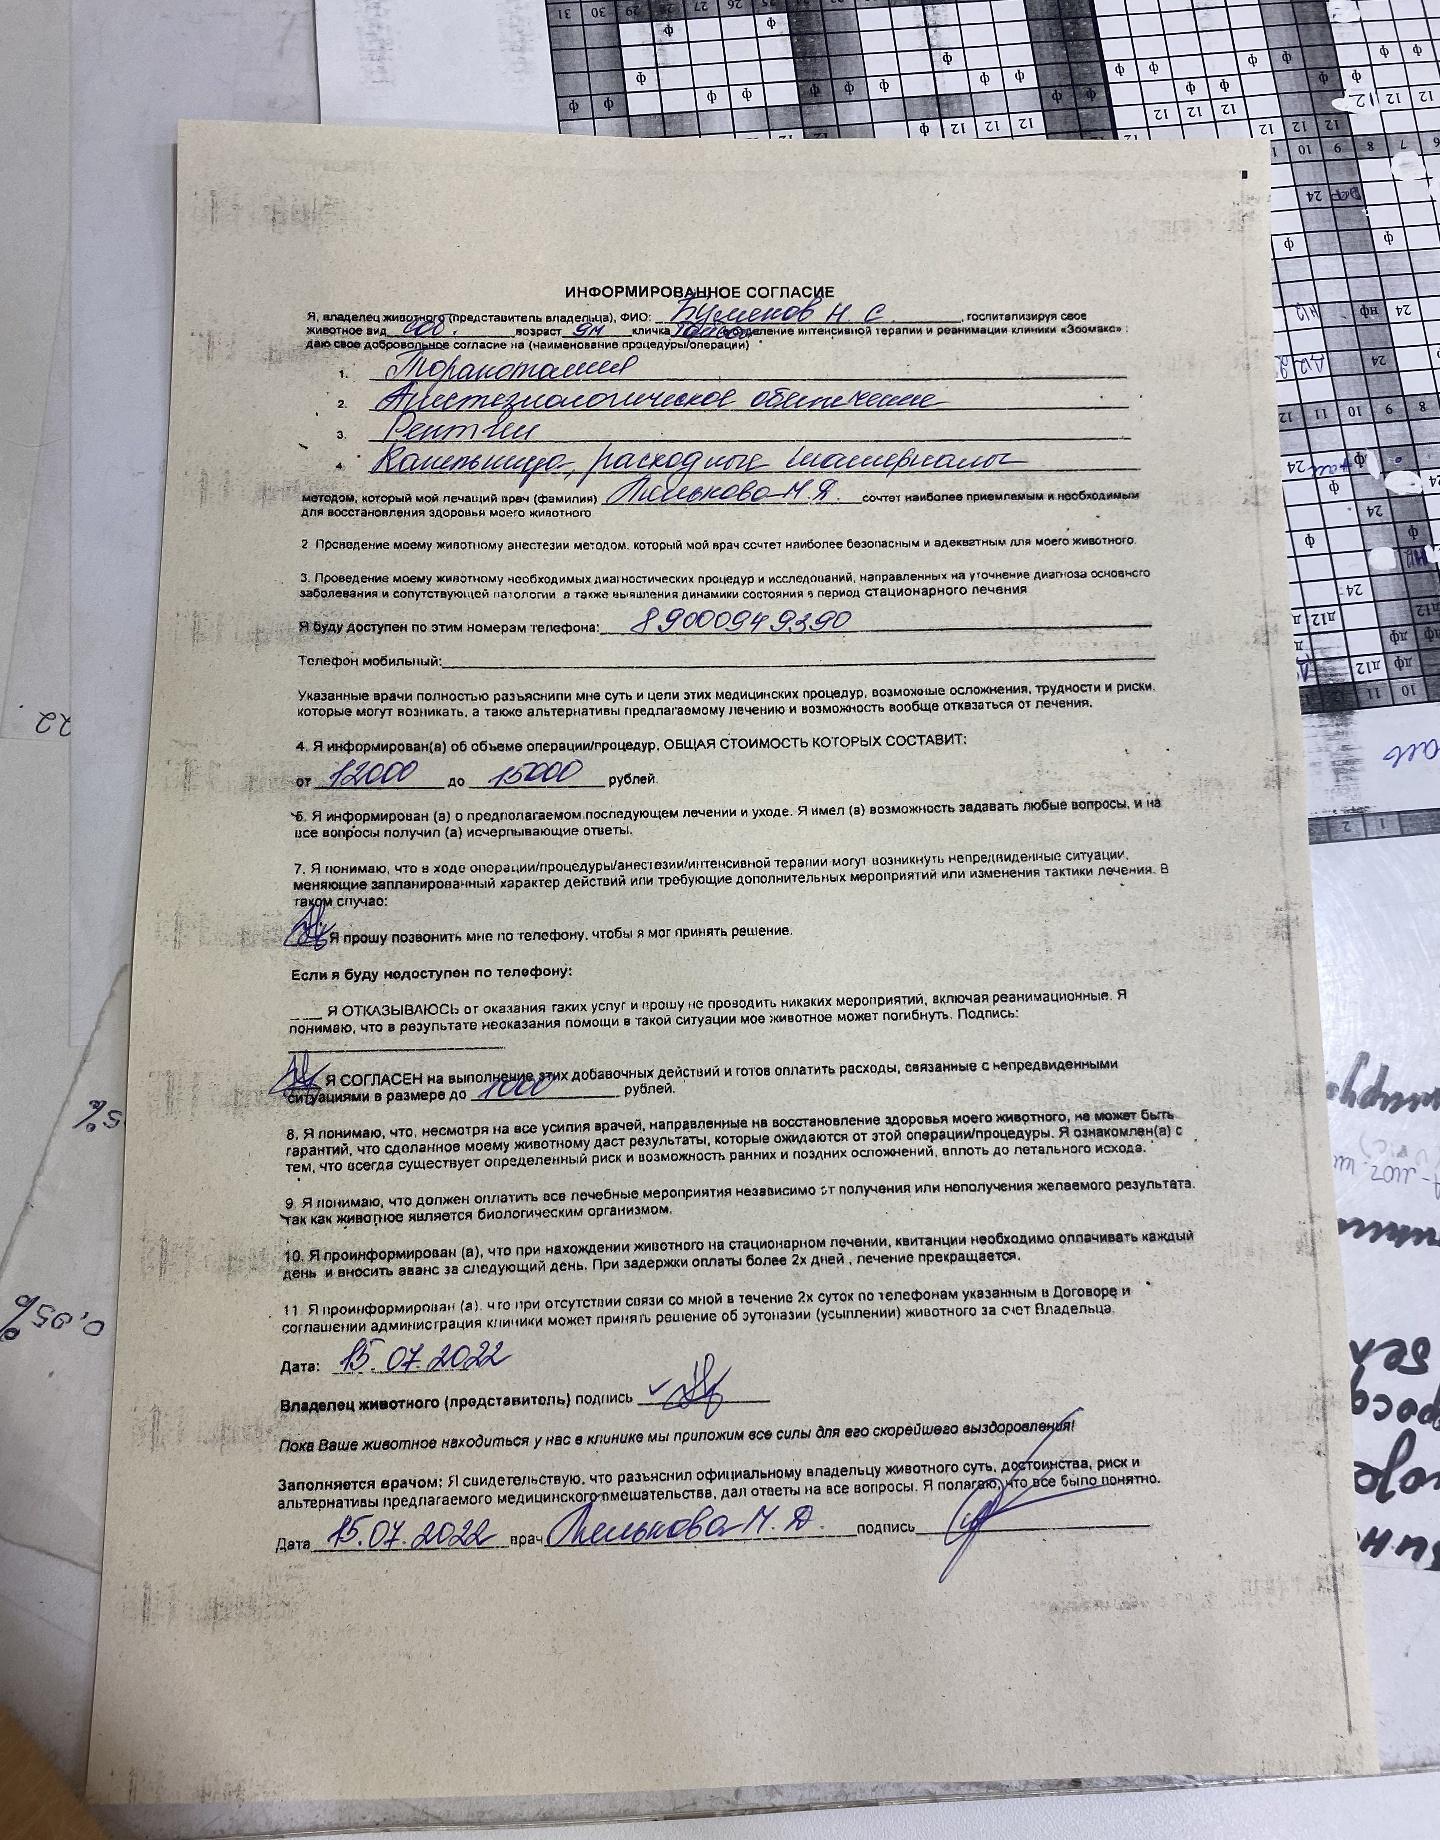 ИНФОРМИРОВАННОЕ СОГЛАСИЕ
Я, владелец животного (представитель владельца), ФИО: Н С , госпитализируя свое
животное вид соб. возраст 9м кличка отделение интенсивной терапии и реанимации клиники «Зоомакс» :
даю свое добровольное согласие на (наименование процедуры/операции)
1. Торакотомия
2. Анестезиологическое обеспечение
3. Рентген
4. Капельница, расходные материалы
методом, который мой лечащий врач (фамилия) сочтет наиболее приемлемым и необходимым
для восстановления здоровья моего животного
2 Проведение моему животному анестезии методом, который мой врач сочтет наиболее безопасным и адекватным для моего животного.
3. Проведение моему животному необходимых диагностических процедур и исследований, направленных на уточнение диагноза основного
заболевания и сопутствующей патологии а также выявления динамики состояния в период стационарного лечения
Я буду доступен по этим номерам телефона: 89000949390
Телефон мобильный:
Указанные врачи полностью разъяснили мне суть и цели этих медицинских процедур, возможные осложнения, трудности и риски,
которые могут возникать, а также альтернативы предлагаемому лечению и возможность вообще отказаться от лечения.
4. Я информирован(а) об объеме операции/процедур, ОБЩАЯ СТОИМОСТЬ КОТОРЫХ СОСТАВИТ:
от 12000 до 15000 рублей.
6. Я информирован (а) о предполагаемом последующем лечении и уходе. Я имел (а) возможность задавать любые вопросы, и на
все вопросы получил (а) исчерпывающие ответы.
7. Я понимаю, что в ходе операции/процедуры/анестезии/интенсивной терапии могут возникнуть непредвиденные ситуации,
меняющие запланированный характер действий или требующие дополнительных мероприятий или изменения тактики лечения. В
таком случае:
Я прошу позвонить мне по телефону, чтобы я мог принять решение.
Если я буду недоступен по телефону:
____ Я ОТКАЗЫВАЮСЬ от оказания таких услуг и прошу не проводить никаких мероприятий, включая реанимационные. Я
понимаю, что в результате неоказания помощи в такой ситуации мое животное может погибнуть. Подпись:
Я СОГЛАСЕН на выполнение этих добавочных действий и готов оплатить расходы, связанные с непредвиденными
ситуациями в размере до 1000 рублей.
8. Я понимаю, что, несмотря на все усилия врачей, направленные на восстановление здоровья моего животного, не может быть
гарантий, что сделанное моему животному даст результаты, которые ожидаются от этой операции/процедуры. Я ознакомлен(а) с
тем, что всегда существует определенный риск и возможность ранних и поздних осложнений, вплоть до летального исхода.
9. Я понимаю, что должен оплатить все лечебные мероприятия независимо от получения или неполучения желаемого результата.
так как животное является биологическим организмом.
10. Я проинформирован (а), что при нахождении животного на стационарном лечении, квитанции необходимо оплачивать каждый
день и вносить аванс за следующий день. При задержки оплаты более 2х дней , лечение прекращается.
11. Я проинформирован (а), что при отсутствии связи со мной в течение 2х суток по телефонам указанным в Договоре и
соглашении администрация клиники может принять решение об эутоназии (усыплении) животного за счет Владельца
Дата: 15.07.2022
Владелец животного (представитель) подпись
Пока Ваше животное находиться у нас в клинике мы приложим все силы для его скорейшего выздоровления!
Заполняется врачом: Я свидетельствую, что разъяснил официальному владельцу животного суть, достоинства, риск и
альтернативы предлагаемого медицинского вмешательства, дал ответы на все вопросы. Я полагаю, что все было понятно.
Дата 15.07.2022 врач подпись